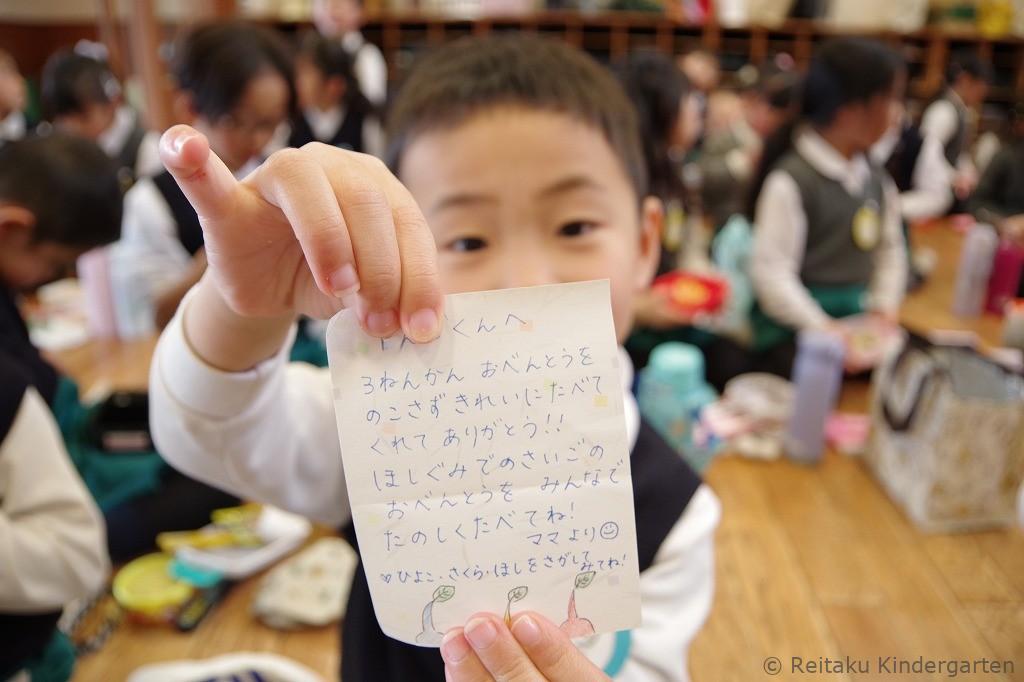 くんへ
3ねんかん おべんとうを
のこさずきれいにたべて
くれて ありがとう!!
ほしぐみでのさいごの
おべんとうを みんなで
たのしくたべてね!
ママより☺
♡ひよこ・さくら・ほしをさがして
みてね!
© Reitaku Kindergarten